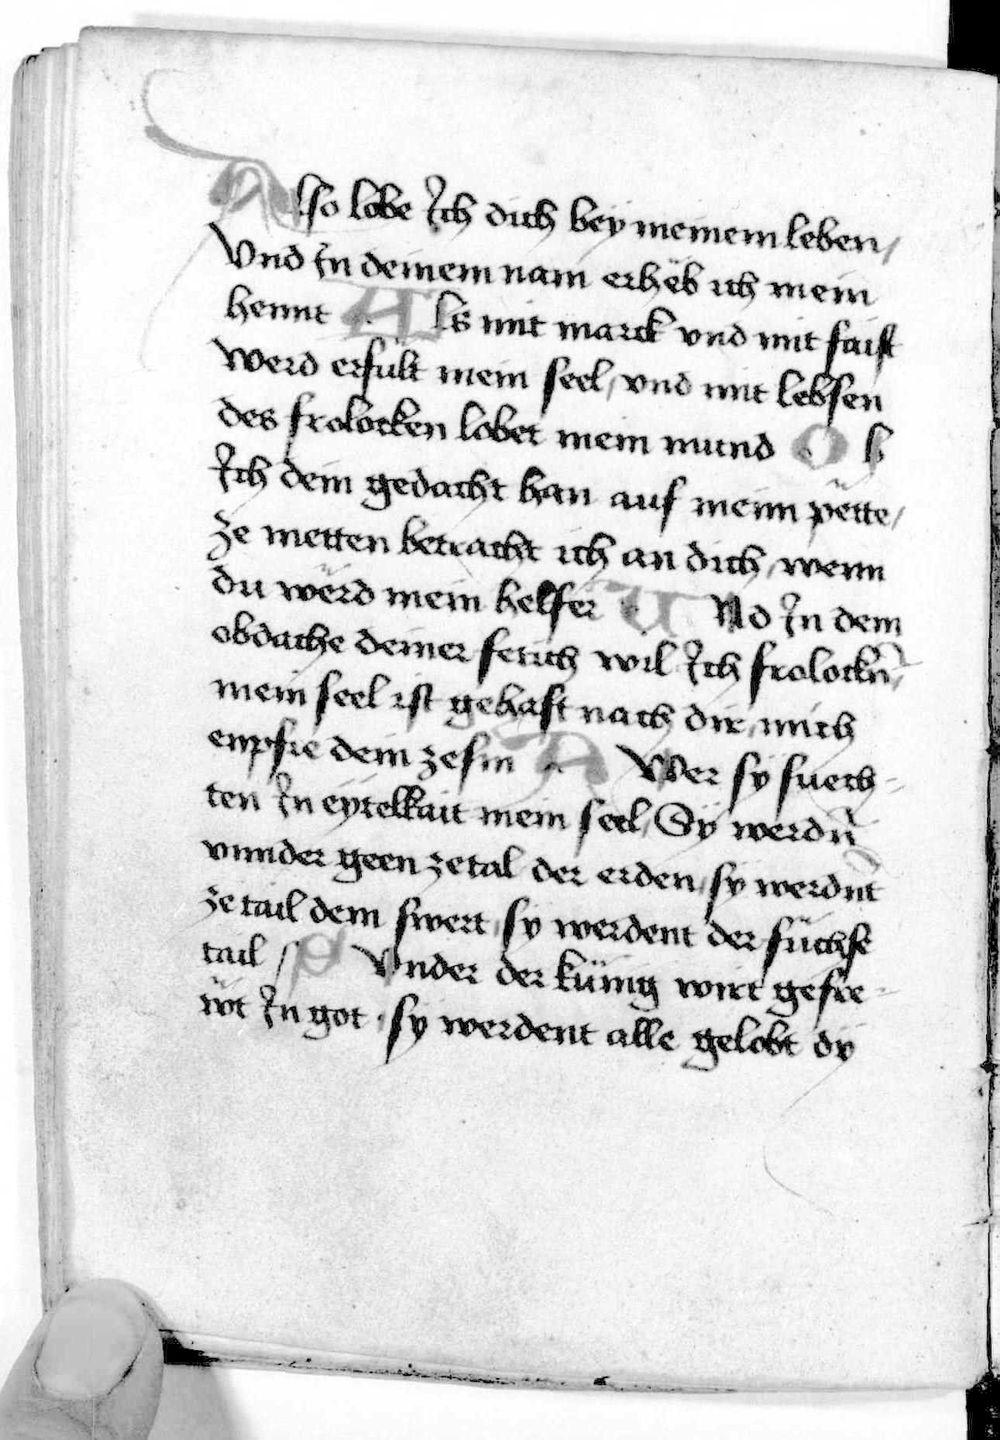 Also lobe Ich dich bey meinem leben /
Vnd In deinem nam erheb ich mein
hennt Als mit marck vnd mit faist
werd erfult mein seel / vnd mit lebsen
des frolocken lobet mein mund Ob
Ich dein gedacht han auf meim pette /
ze metten betracht ich an dich / wenn
du werd mein helfer Vnd In dem
obdache deiner fetich wil Ich frolockn̄ /
mein seel ist gehaft nach dir / mich
enpfie dein zesm Awer sy suech-
ten In eytelkait mein seel / Sy werdn̄
vnnder geen ze tal der erden / sy werdn̄t
ze tail dem swert / sy werdent der füchse
tail / Vnder der künig wirt gefre-
wt In got / sy werdent alle gelobt dy